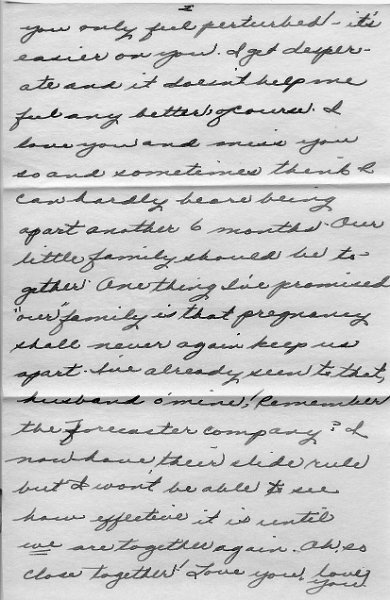 I
you only feel perturbed - it's
easier on you. I get desper-
ate and it doesn't help me
feel any better, of course. I
love you and miss you
so and sometimes think I
can hardly beare being
apart another 6 months. Our
little family should be to-
gether. One thing I've promised
"our" family is that pregnancy
shall never again keep us
apart. I've already seen to that,
husband o'mine! Remember
the Forecaster company? I
now have their slide rule
but I won't be able to see
how effective it is until
we are together again. Oh, so
close together! Love you, love
you